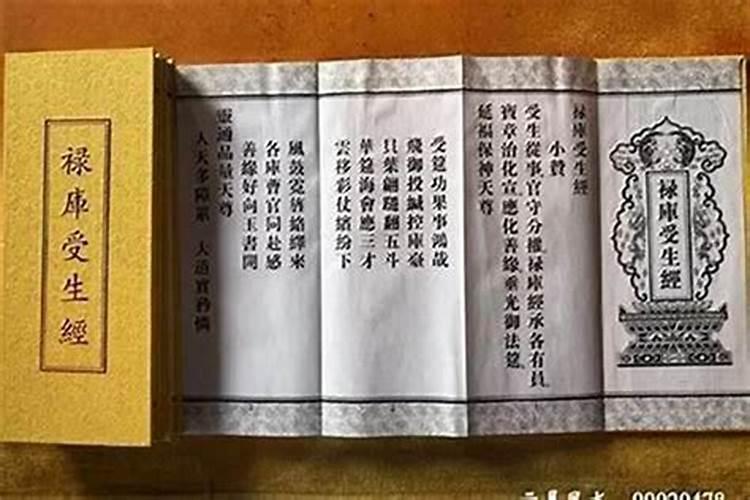 祿庫受生經
祿庫受生經
祿庫受生經
小贊
受生從事官守分權祿庫經承各有員
寶章治化宣應化善緣垂光御法筵
延福保神天尊
受筵功果事鴻哉
飛御投緘控庫臺
貝葉翩翻五斗
華筵海會應三才
雲移彩仗繽紛下
風鼓霓旌絡繹來
各庫曹官同赴感
善緣好向玉書開
靈通品量天尊
人天多障累
大道實矜憐